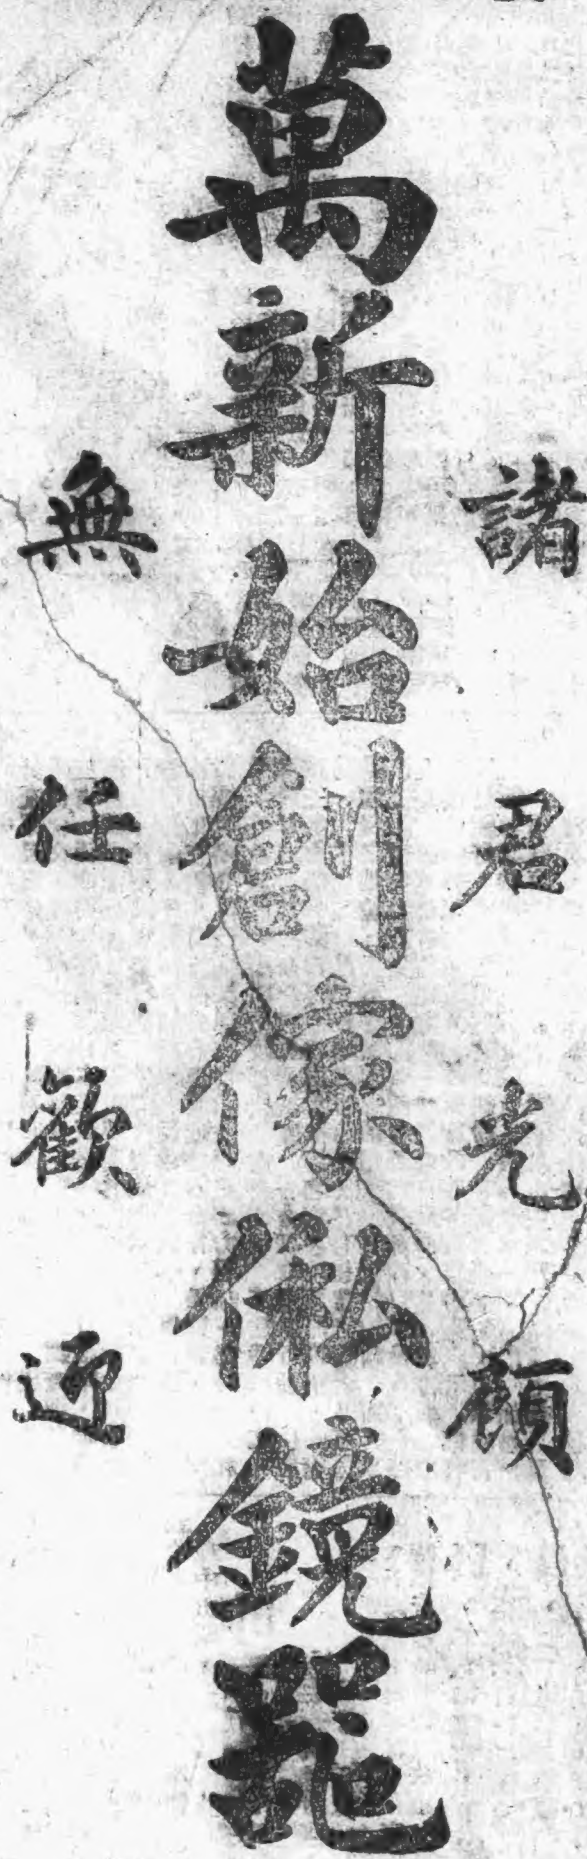 諸君光顧
萬新始創傢俬鏡器
無任歡迎